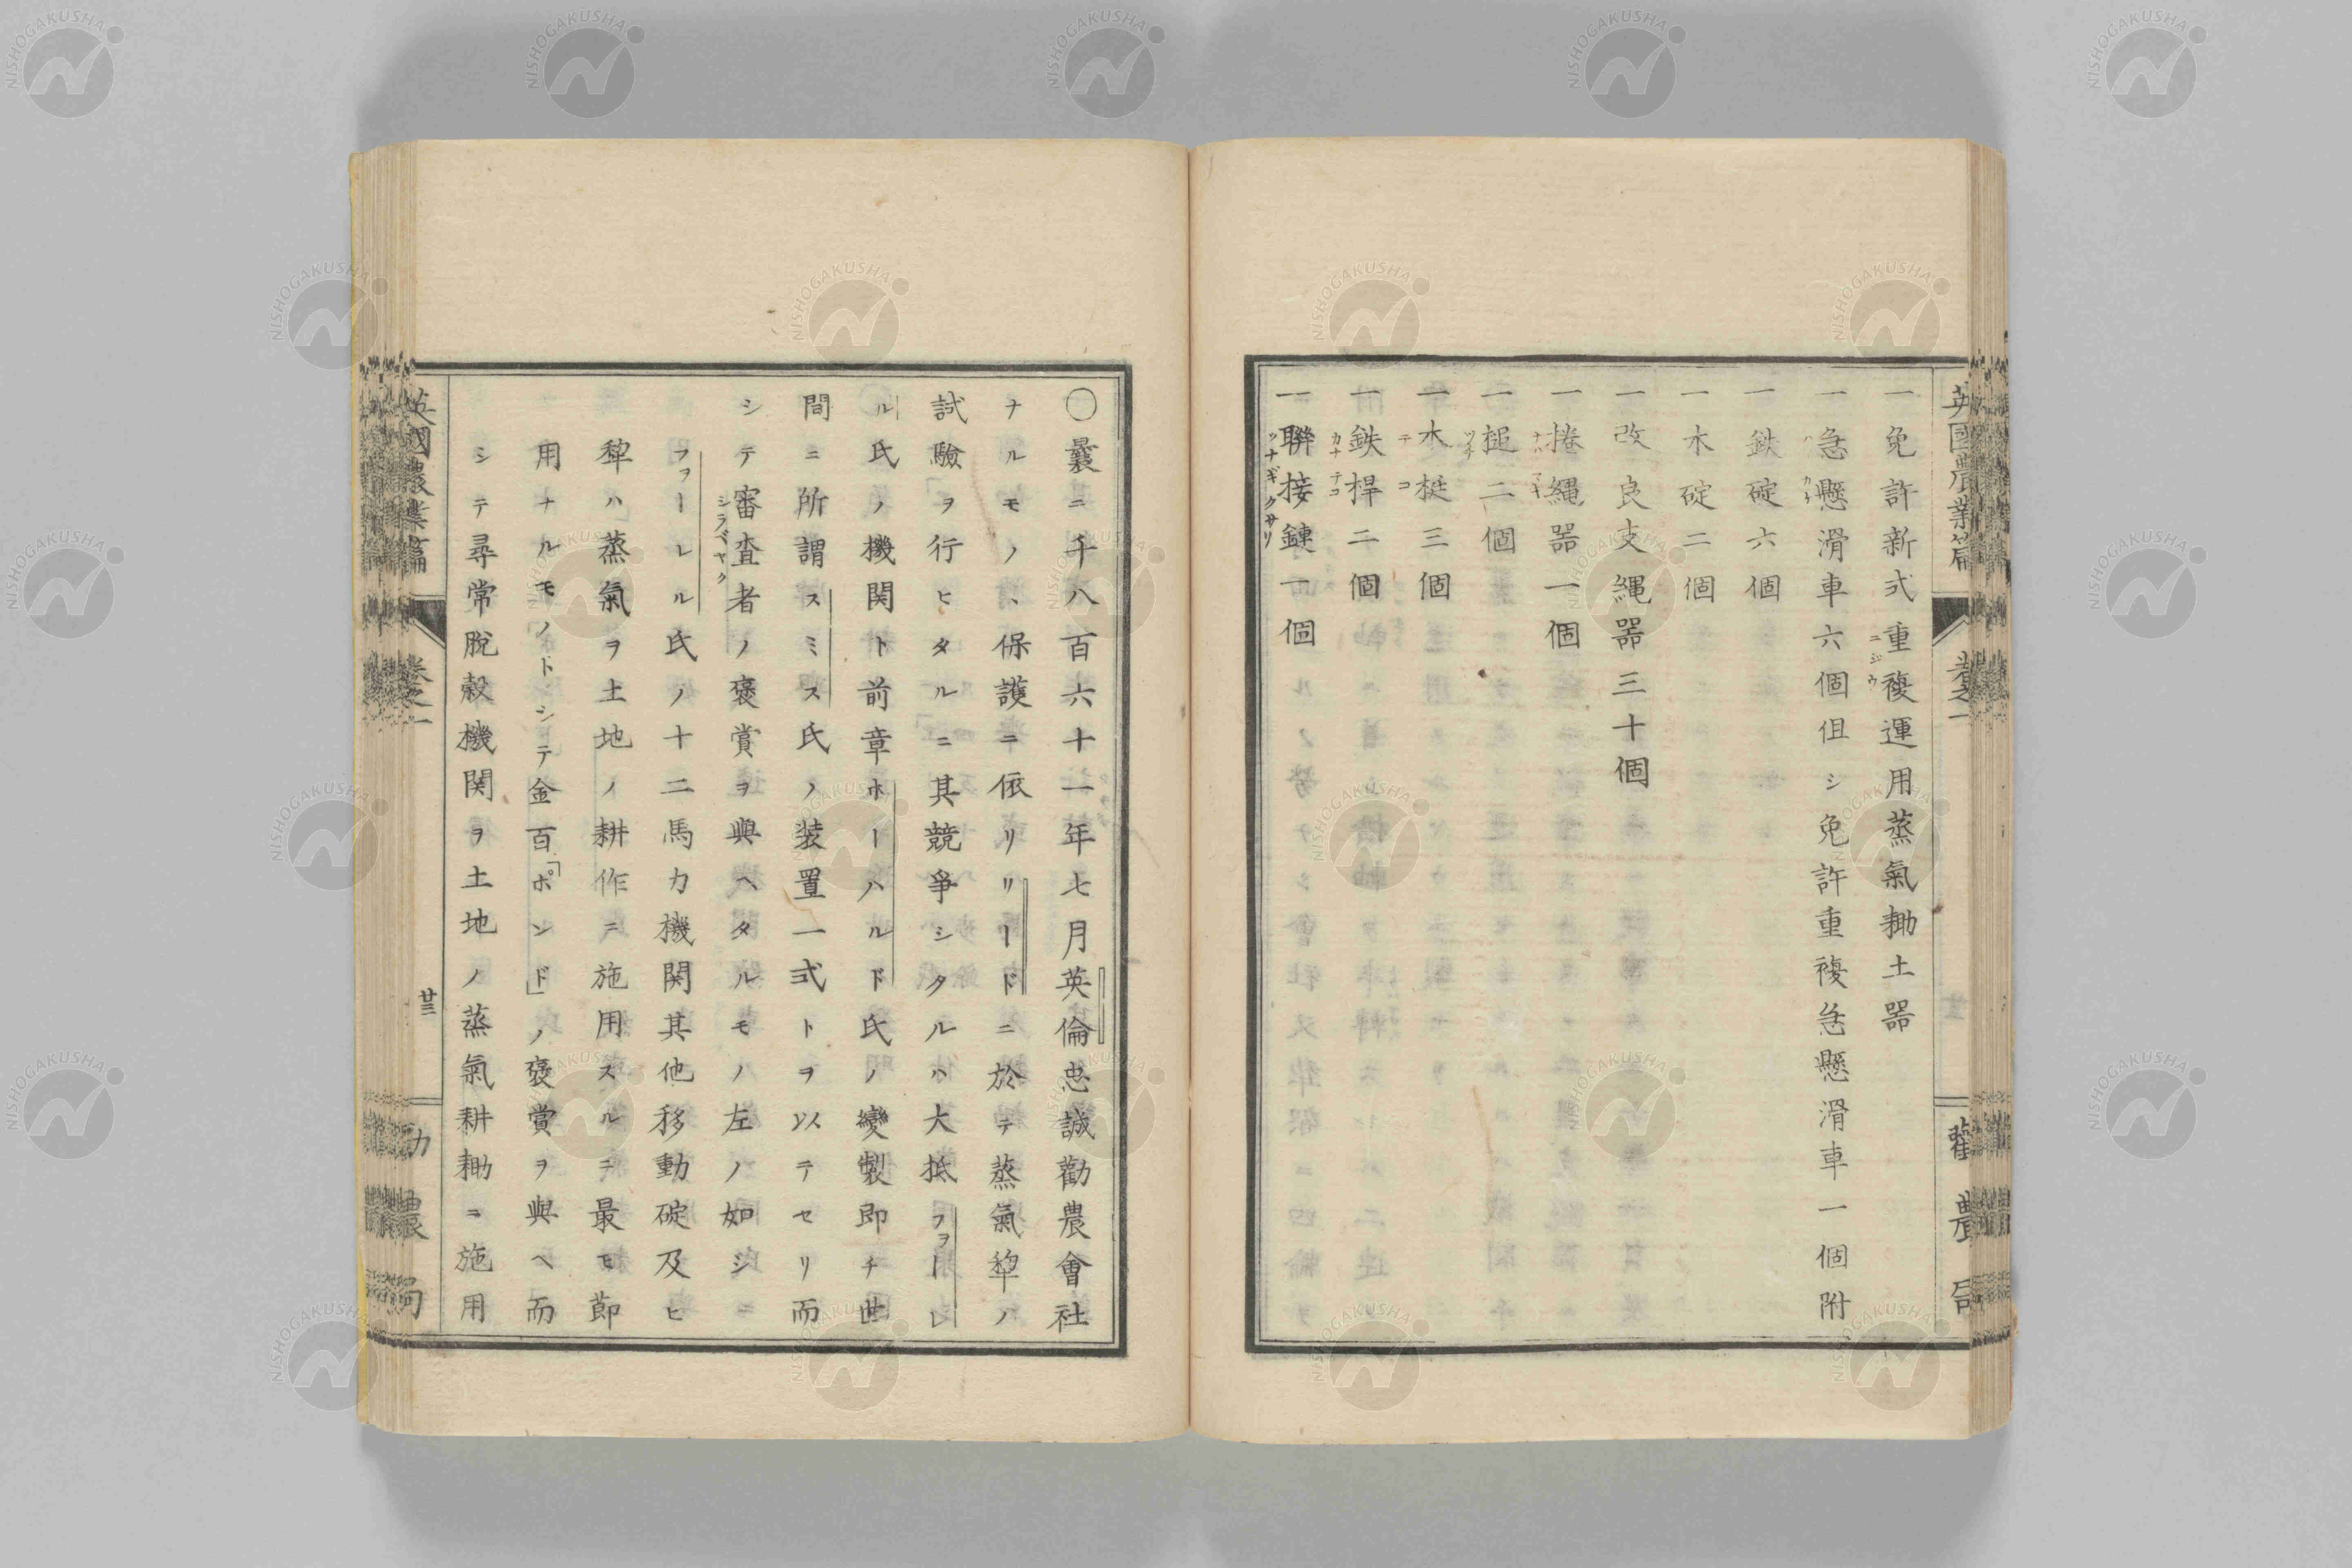 英國農業篇 卷之一 勸農局
一免許新式重複運用蒸氣耡土噐
ニジウ
一㤂懸滑車六個伹シ免許重複㤂懸滑車一個附
一鉄碇六個
一木碇二個
一改良支縄噐三十個
一捲縄噐一個
ナハマキ
一槌二個
ツチ
一木梃三個
テコ
一鉄桿二個
カナテコ
一聯接鏈一個
ツナギクサリ
〇曩ニ千八百六十一年七月英倫忠誠勸農會社
ナルモノヽ保護ニ依リリードニ於テ蒸氣犂ノ
試驗ヲ行ヒタルニ其競爭シタルハ大抵フヲーレ
ル氏ノ機関ト前章ホーハルド氏ノ變製即チ世
間ニ所謂スミス氏ノ装置一式トヲ以テセリ而
シテ審査者ノ褒賞ヲ與ヘタルモノハ左ノ如シ
シラベヤク
フヲーレル氏ノ十二馬力機関其他移動碇及ヒ
犂ハ蒸氣ヲ土地ノ耕作ニ施用スルニ最モ節
用ナルモノトシテ金百「ポンド」ノ褒賞ヲ與ヘ而
シテ尋常脫穀機関ヲ土地ノ蒸氣耕耡ニ施用
英國農業篇 卷之一 廿三 勸農局